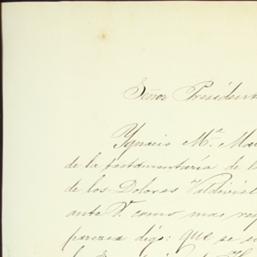 Señor Presidente
Ygnacio M.ª
de la testamentaría de l
de los Dolores Valdivie
ante V. como mas
parezca digo: que se